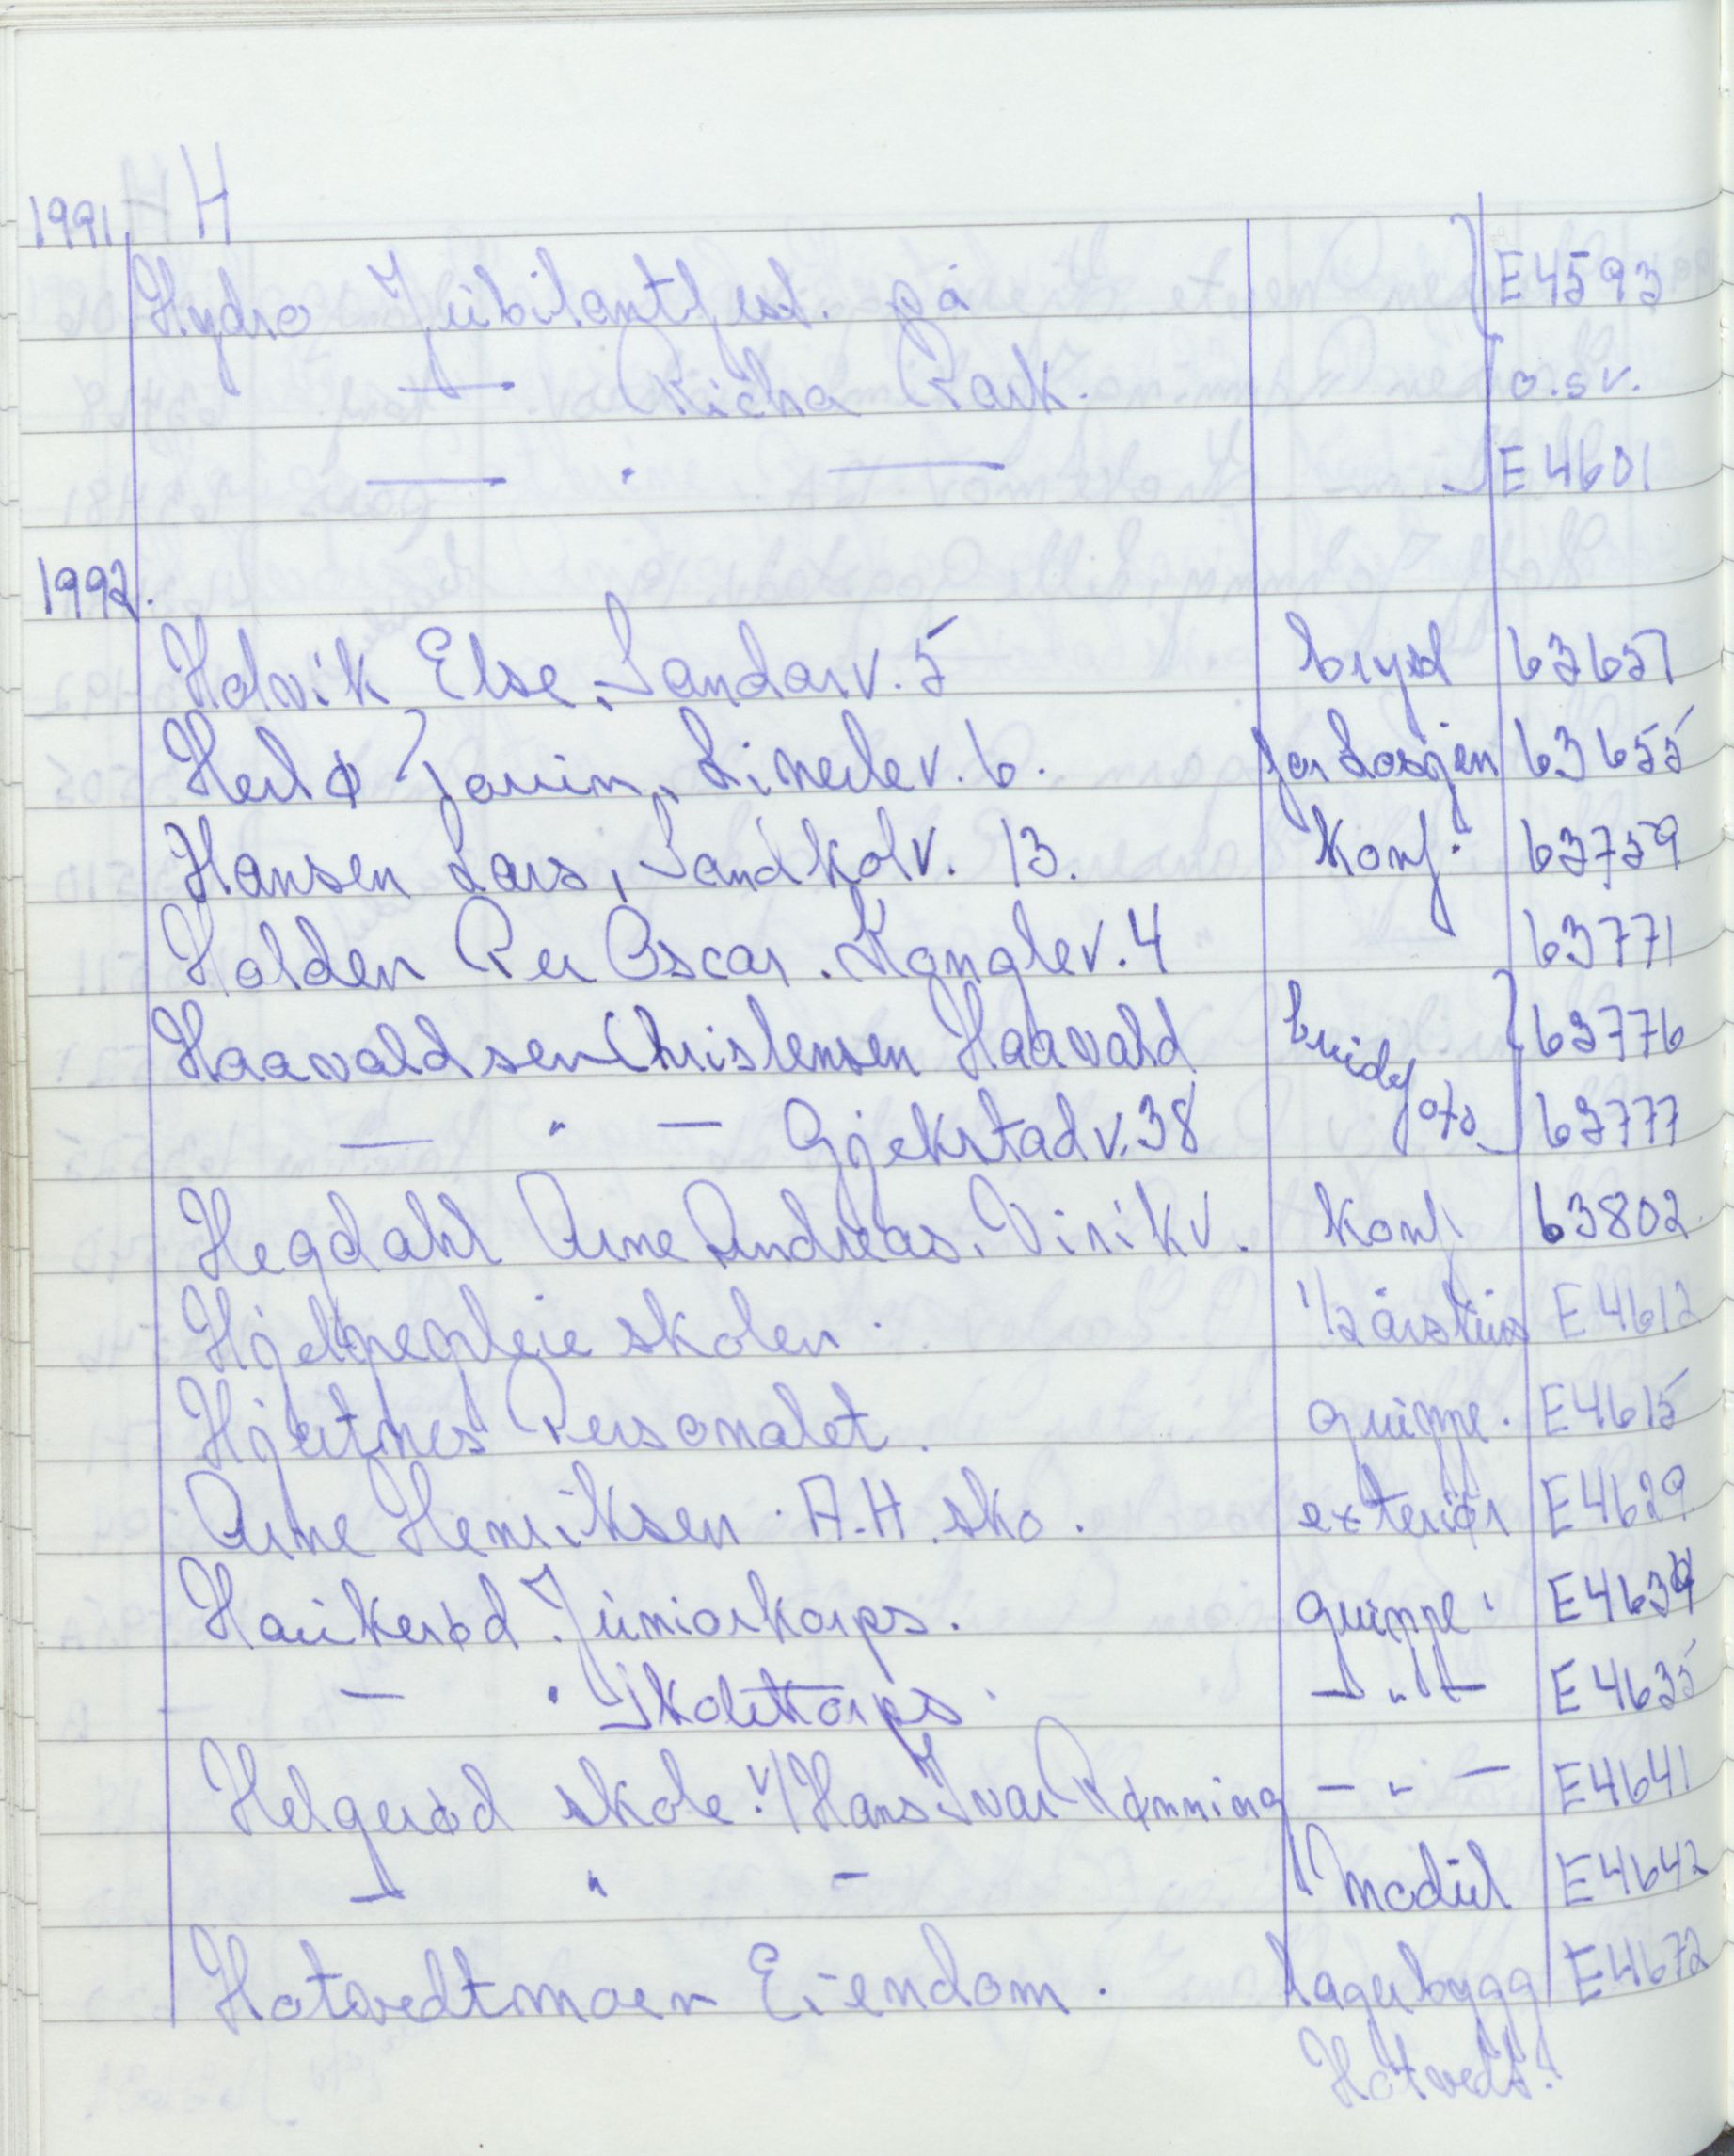 1991. H
Hydro Jubilantfest. på } E4593
— Richa Park. o.s.v.
— . — E4601
1992.
Holvik Else, Sandarv. 5 bryst 63657
Herlø Linerlev. 6. 63655
Hansen Lars, Sandkolv. 13. Konf. 63759
Holden Per Oscar. Konglev. 4 63771
Haavaldsen Christensen Haavald brude } 63776
— " — Gjekstadv. 38 foto 63777
Hegdahl Arne Andreas. Virikv. Konf. 63802
Hjelpepleieskolen. 1/2 årskurs E4612
Hjertnes Personalet. gruppe. E4615
Arne Henriksen. A.H. sko. exteriør E4629
Haukerød Juniorkorps. gruppe. E4634
— . Skolekorps. — " — E4635
Helgerød skole. v/ Hans Ivar Rønning — " — E4641
— " — Modul E4642
Hotvedtmoen Eiendom. Lagerbygg E4672
Hotvedt.